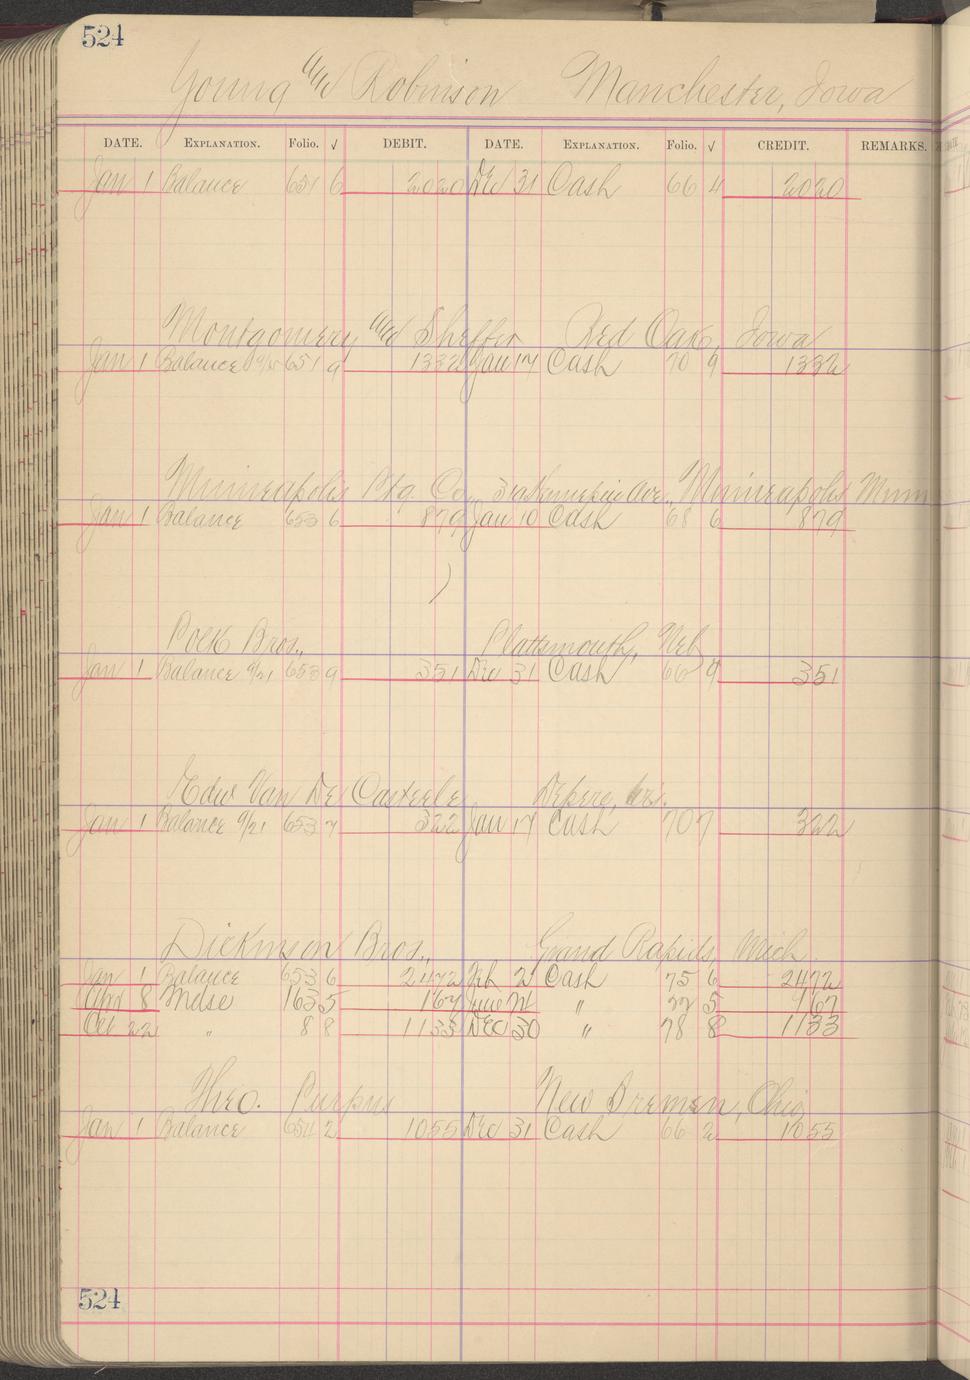 524
Young and Robinson Manchester, Iowa
DATE. EXPLANATION. Folio. √ DEBIT. DATE. EXPLANATION. Folio. √ CREDIT. REMARKS.
Jan 1 Balance 651 6 2020 Dec 31 Cash 66 4 2020
Montgomery and Sheffer Red Oak, Iowa
Jan 1 Balance 651 9 1332 Jan 17 Cash 70 9 1332
Minneapolis Ptg. Co., Hennepin Ave., Minneapolis Minn
Jan 1 Balance 653 6 879 Jan 10 Cash 68 6 879
Polk Bros., Plattsmouth, Neb
Jan 1 Balance 9/21 653 9 351 Dec 31 Cash 66 9 351
Edw Van De Casteele Depere, Wis.
Jan 1 Balance 9/21 653 7 322 Jan 17 Cash 70 7 322
Dickinson Bros., Grand Rapids, Mich.
Jan 1 Balance 653 6 2472 Feb 2 Cash 75 6 2472
Apr 8 Mdse 163 5 167 June " 5 167
Oct 22 " 8 8 1133 Dec 30 " 78 8 1133
Theo. Purpus New Bremen, Ohio
Jan 1 Balance 654 2 1055 Dec 31 Cash 66 2 1055
524